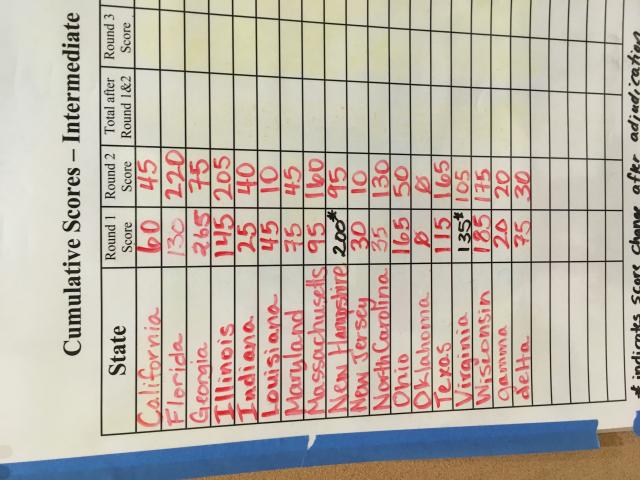 Cumulative Scores – Intermediate
State Round 1 Score Round 2 Score Total after Round 1&2 Round 3 Score
California 60 45
Florida 130 220
Georgia 265 75
Illinois 145 205
Indiana 25 40
Louisiana 45 10
Maryland 75 45
Massachusetts 95 160
New Hampshire 200* 95
New Jersey 30 10
North Carolina 35 130
Ohio 165 50
Oklahoma Ø Ø
Texas 115 165
Virginia 135* 105
Wisconsin 185 175
gamma 20 20
delta 75 30
* indicates score change after adjudication